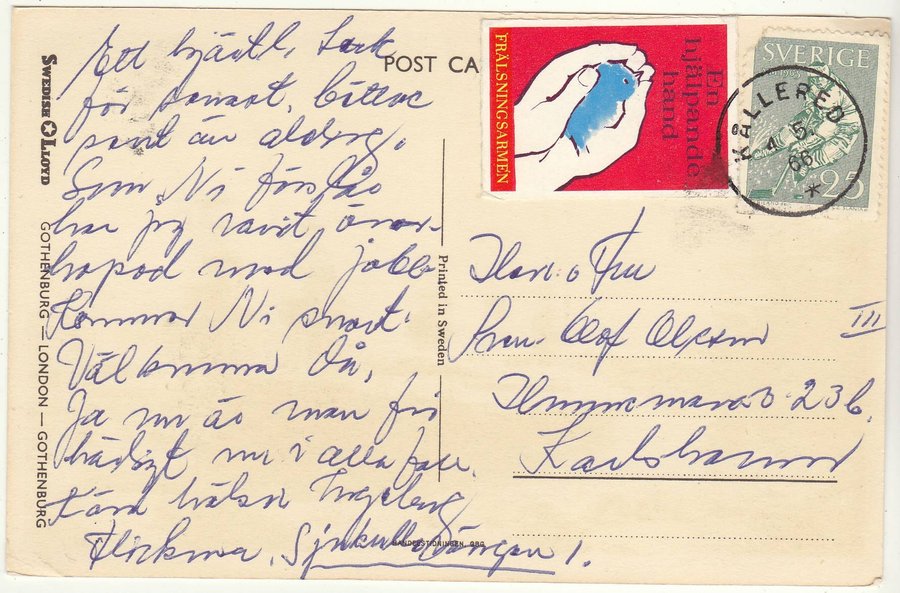 Ett hjärtl. tack
för senast, bättre
sent än aldrig.
Som Ni förstås
har jag varit över-
hopad med jobb.
Kommer Ni snart.
Välkomna då,
Ja nu är man fri
härligt nu i alla fall.
Kära hälsn Ingeborg
Flickorna, Sjukullevängen 1.
SWEDISH LLOYD
GOTHENBURG — LONDON — GOTHENBURG
POST CA
Printed in Sweden
HANDELSTIDNINGEN, GBG
FRÄLSNINGSARMÉN
En
hjälpande
hand
SVERIGE
25
KÅLLERED
4 5
66
*
Herr o Fru
Sven-Olof Olsson
III
23 b.
Karlshamn